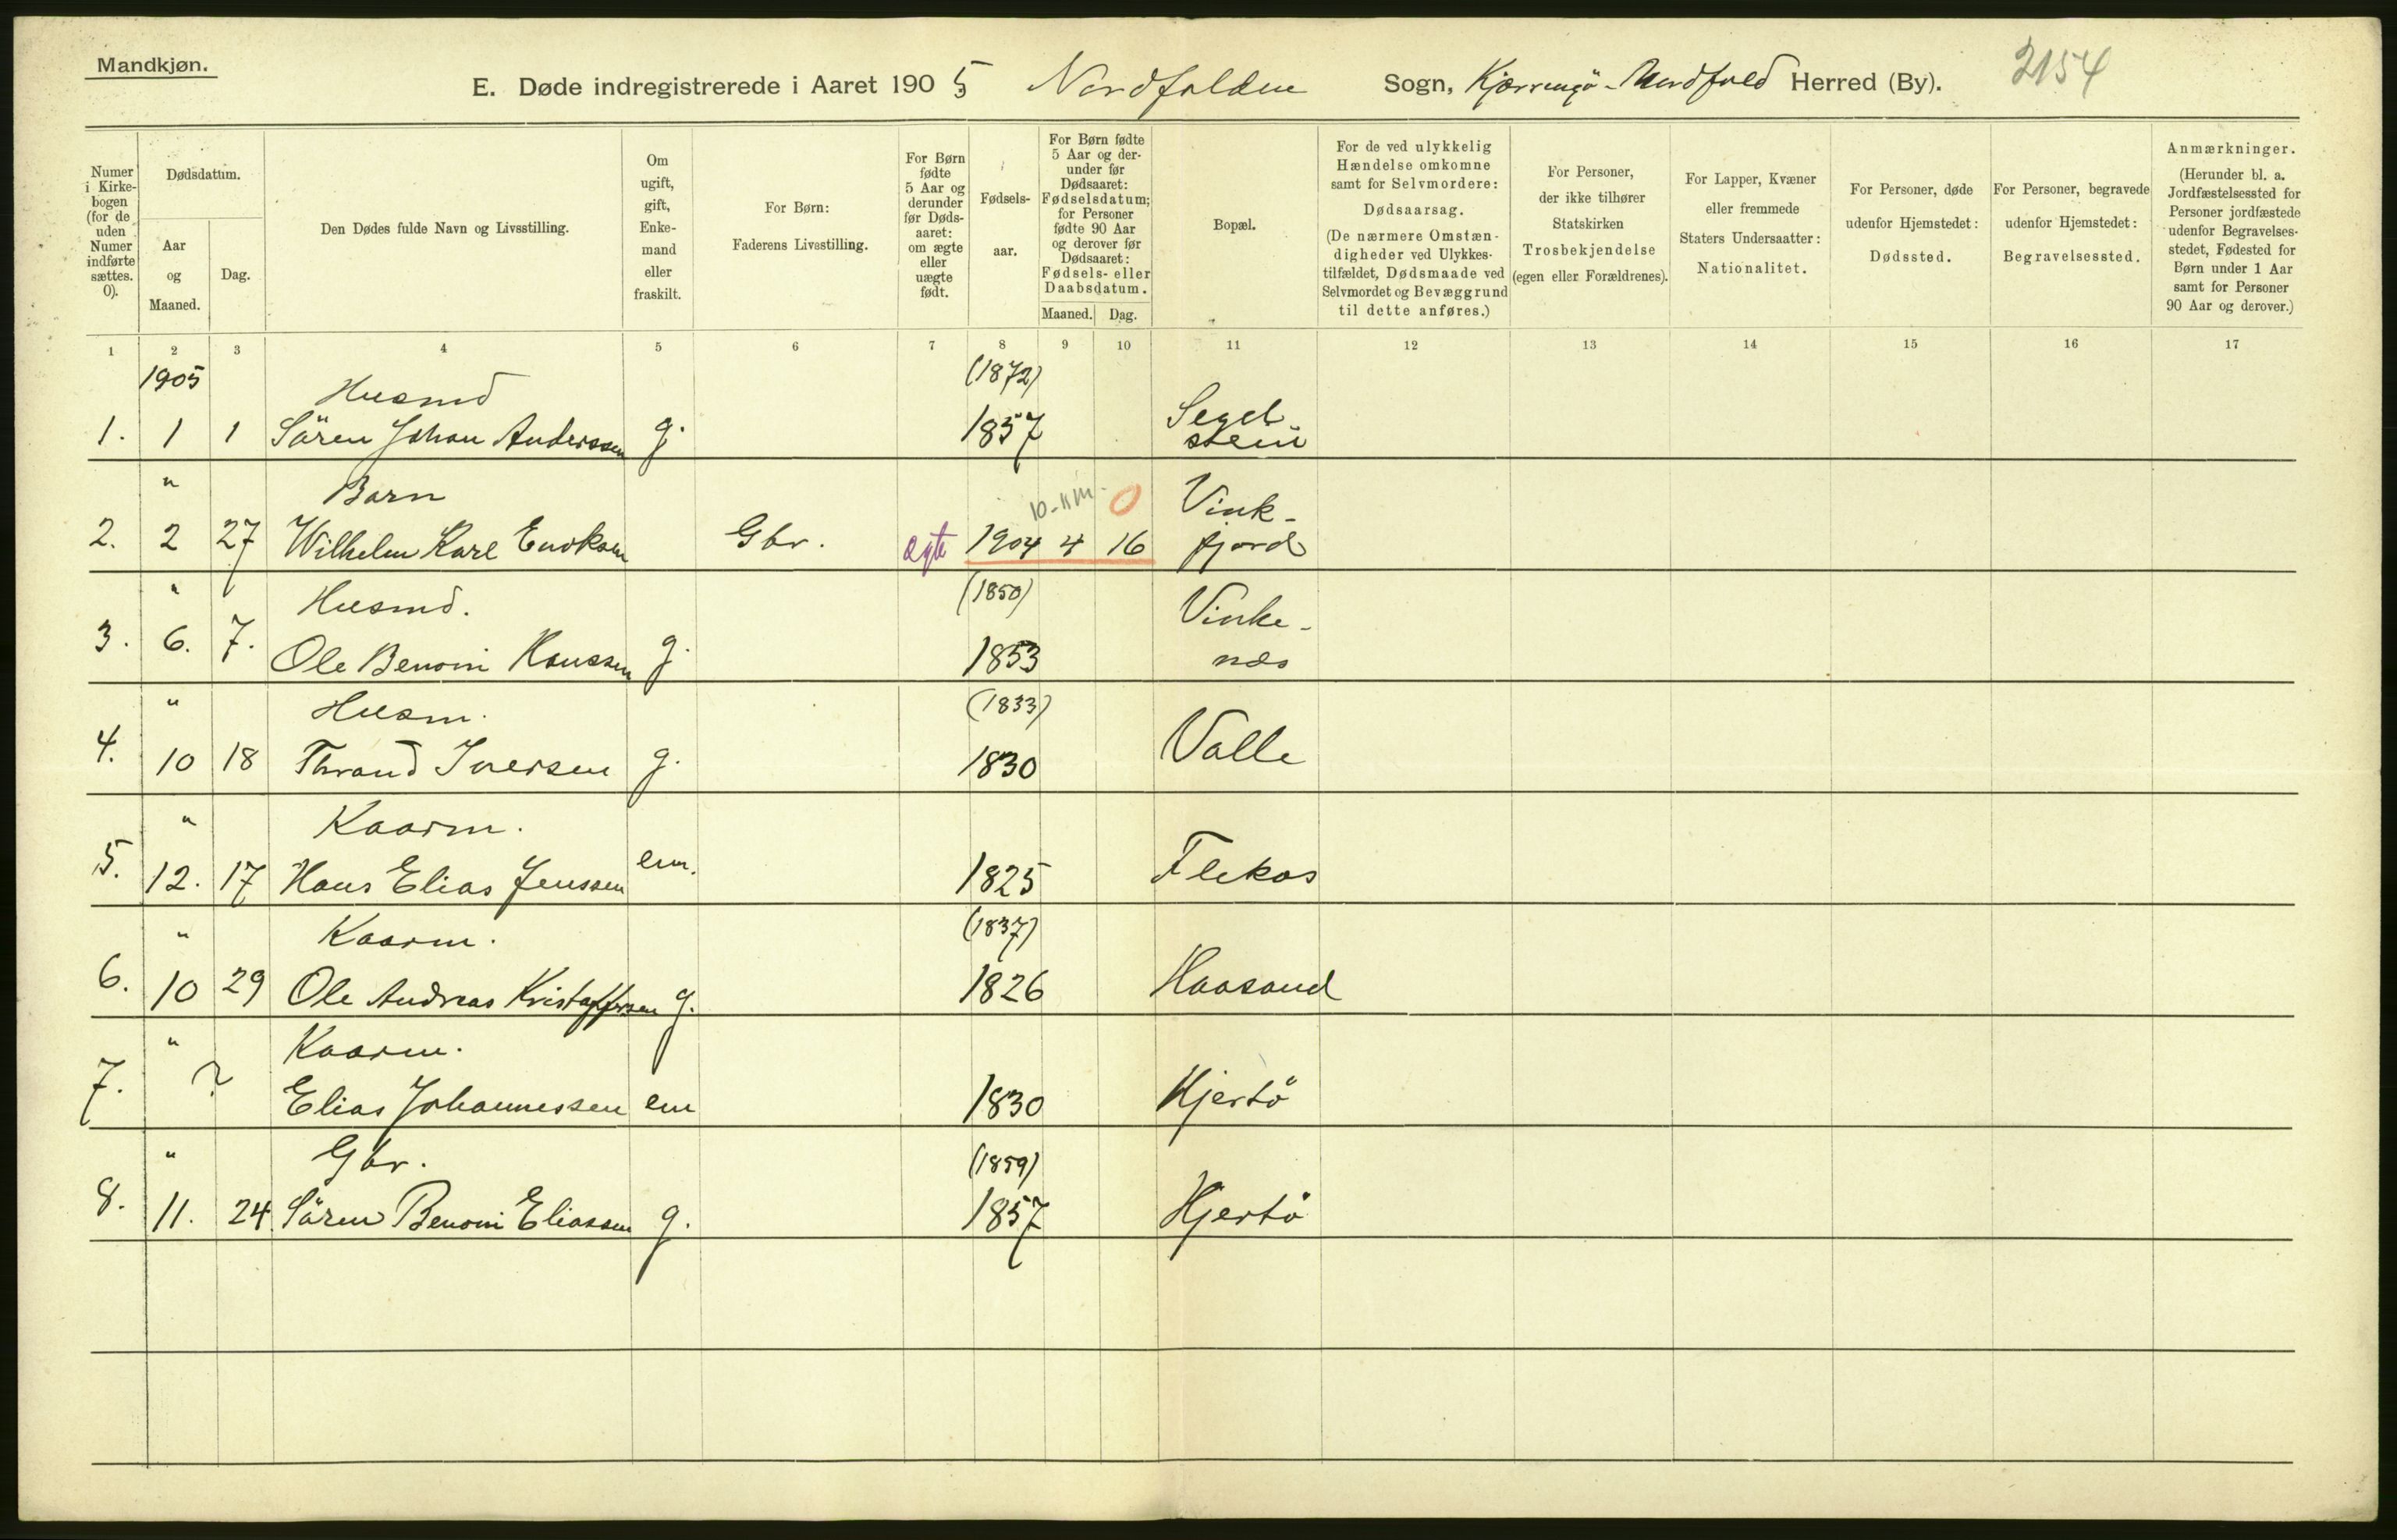 Mandkjøn.
E. Døde indregistrerede i Aaret 1905 Nordfolden Sogn, Kjærringö-Nordfold Herred (By). 2154
Numer i Kirkebogen (for de uden Numer indførte sættes. 0).
Dødsdatum.
Aar og Maaned.
Dag.
Den Dødes fulde Navn og Livsstilling.
Om ugift, gift, Enkemand eller fraskilt.
For Børn: Faderens Livsstilling.
For Børn fødte 5 Aar og derunder før Dødsaaret: om ægte eller uægte født.
Fødselsaar.
For Børn fødte 5 Aar og derunder før Dødsaaret: Fødselsdatum; for Personer fødte 90 Aar og derover før Dødsaaret: Fødsels- eller Daabsdatum.
Maaned. Dag.
Bopæl.
For de ved ulykkelig Hændelse omkomne samt for Selvmordere: Dødsaarsag. (De nærmere Omstændigheder ved Ulykkestilfældet, Dødsmaade ved Selvmordet og Bevæggrund til dette anføres.)
For Personer, der ikke tilhører Statskirken Trosbekjendelse (egen eller Forældrenes).
For Lapper, Kvæner eller fremmede Staters Undersaatter: Nationalitet.
For Personer, døde udenfor Hjemstedet: Dødssted.
For Personer, begravede udenfor Hjemstedet: Begravelsessted.
Anmærkninger. (Herunder bl. a. Jordfæstelsessted for Personer jordfæstede udenfor Begravelsesstedet, Fødested for Børn under 1 Aar samt for Personer 90 Aar og derover.)
1 2 3 4 5 6 7 8 9 10 11 12 13 14 15 16 17
1905 Husmd (1872) Segel-
1. 1 1 Sören Johan Anderssen g. 1857 stein
" Barn 10-11 m. 0 Vink-
2. 2 27 Wilhelm Karl Enoksen Gbr. ægte 1904 4 16 fjord
" Husmd. (1850) Vinke-
3. 6. 7. Ole Benoni Hanssen g. 1853 næs
" Husm. (1833)
4. 10 18 Thrand Iversen g. 1830 Valle
" Kaarm.
5. 12. 17 Hans Elias Jenssen em. 1825 Flekas
" Kaarm. (1837)
6. 10 29 Ole Andreas Kristoffersen g. 1826 Haasand
" Kaarm.
7. ? Elias Johannessen em 1830 Hjertö
" Gbr. (1859)
8. 11. 24 Sören Benoni Eliassen g. 1857 Hjertö